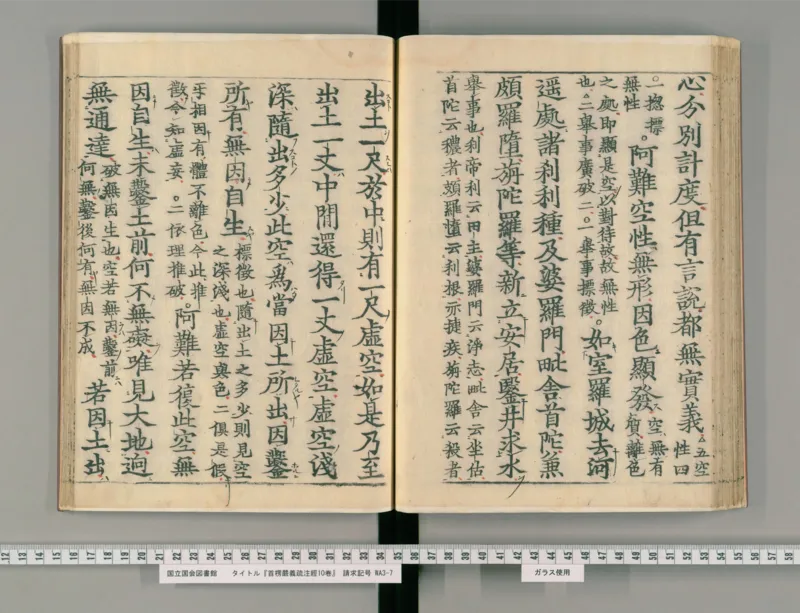 心分別計度但有言說都無實義五空性四
一揔標無性阿難空性無形因色顯發空無有質離色
之處即顯是空以對待故故無性也二舉事廣破二一舉事標徵如室羅城去河
遥處諸刹利種及婆羅門毗舍首陀兼
頗羅墮旃陀羅等新立安居鑿井求水
舉事也刹帝利云田主婆羅門云淨志毗舍云坐估
首陀云穠者頗羅墮云利根亦捷疾旃陀羅云殺者
出土一尺於中則有一尺虛空如是乃至
出土一丈中間還得一丈虛空虛空淺
深隨出多少此空爲當因土所出因鑿
所有無因自生標徵也隨出土之多少則見空之深淺也虛空與色二俱是假
手相因有體不離色今此推徵令知虛妄二依理推破阿難若復此空無
因自生未鑿土前何不無礙唯見大地迥
無通達破無因生也空若無因鑿前何無鑿後何有無因不成若因土出
国立国会図書館 タイトル『首楞嚴義疏注經10巻』 請求記号 WA3-7
ガラス使用